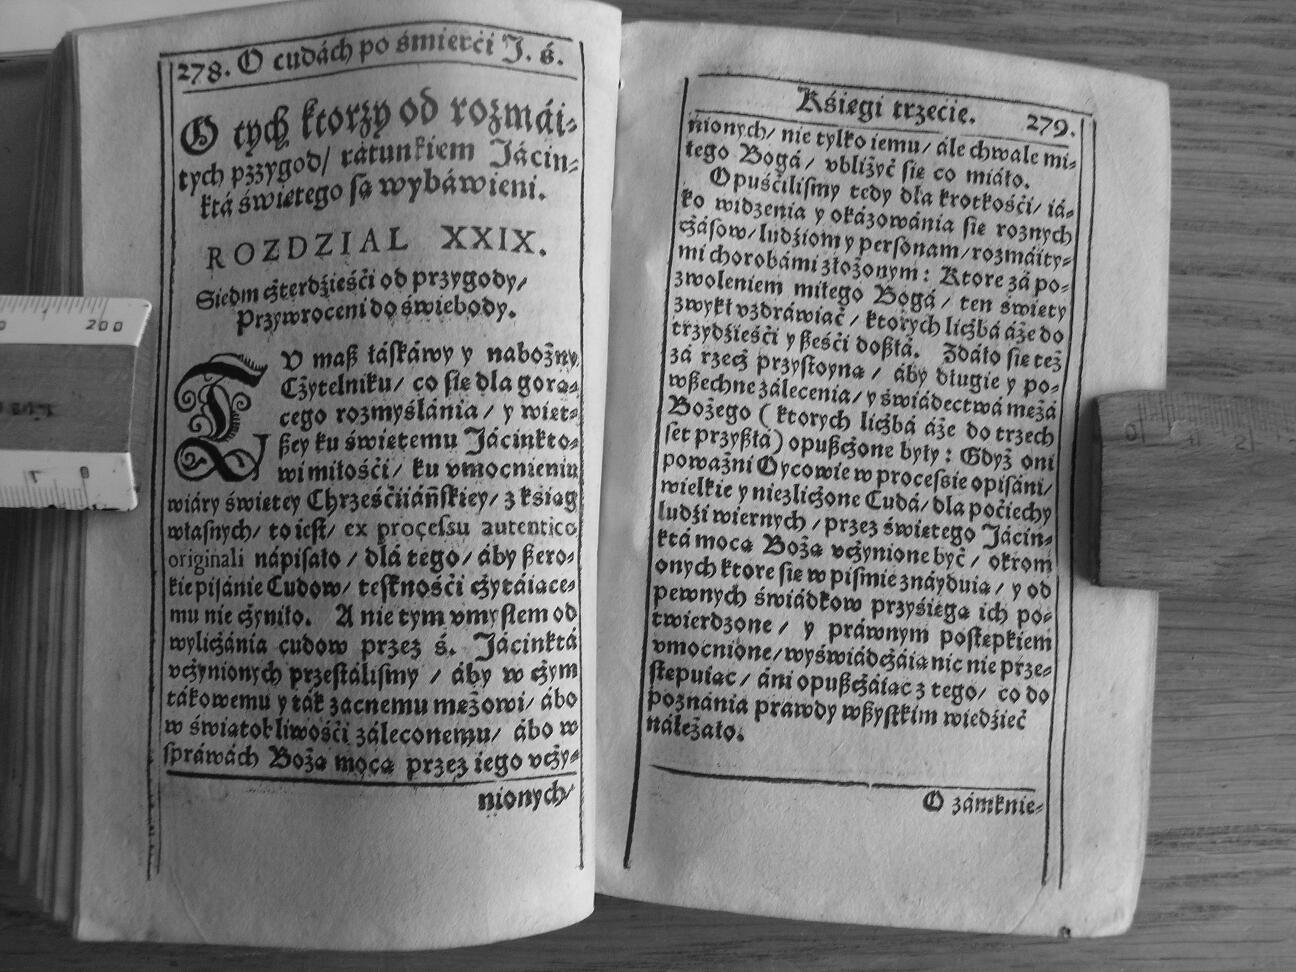 278. O cudách po śmierći J. ś.
O tych ktorzy od rozmái-
tych przygod/ rátunkiem Jácin-
ktá świetego są wybáwieni.
ROZDZIAL XXIX.
Siedm cżterdźieśći od przygody/
Przywroceni do świebody.
TV maß łáskáwy y nabożny
Cżytelniku/ co się dla gorą-
cego rozmyślánia / y więt-
ßey ku świętemu Jácinkto-
wi miłośći/ ku vmocnieniu
wiáry świętey Chrześćiiáńſkiey/ z kśiąg
własnych/ to ieſt/ ex proçeſsu autentico
originali nápisáło / dlá tego/ áby ßero-
kie piſánie Cudow/ teſknośći cżytáiące-
mu nie cżyniło. A nie tym vmyſłem od
wylicżánia cudow przez ś. Jácinktá
vcżynionych przeſtáliſmy / áby w cżym
tákowemu y ták zacnemu mężowi/ ábo
w świątobliwośći záleconemu/ ábo w
ſpráwách Bożą mocą przez iego vcży-
nionych/
Kśięgi trzećie. 279.
nionych/ nie tylko iemu/ ále chwale mi-
łego Bogá/ vbliżyć się co miáło.
Opuśćiliſmy tedy dla krotkośći/ iá-
ko widzenia y okázowánia się roznych
cżáſow/ ludźiom y perſonam/ rozmáity-
mi chorobámi złożonym: Ktore zá po-
zwoleniem miłego Bogá/ ten święty
zwykł vzdráwiáć/ ktorych licżbá áże do
trzydźieśći y ßeśći doßłá. Zdáło się też
zá rzecż przyſtoyną / áby długie y po-
wßechne zálecenia/ y świádectwá mężá
Bożego (ktorych licżbá áże do trzech
ſet przyßłá) opußcżone były: Gdyż oni
poważni Oycowie w proceſsie opiſáni/
wielkie y niezlicżone Cudá/ dla poćiechy
ludźi wiernych / przez świętego Jácin-
ktá mocą Bożą vcżynione być/ okrom
onych ktore się w piſmie znáyduią/ y od
pewnych świádkow przyśięgą ich po-
twierdzone/ y práwnym poſtępkiem
vmocnione/ wyświádcżáią nic nie prze-
ſtępuiąc/ áni opußcżáiąc z tego/ co do
poznánia prawdy wßyſtkim wiedźieć
náleżáło.
O zámknie-